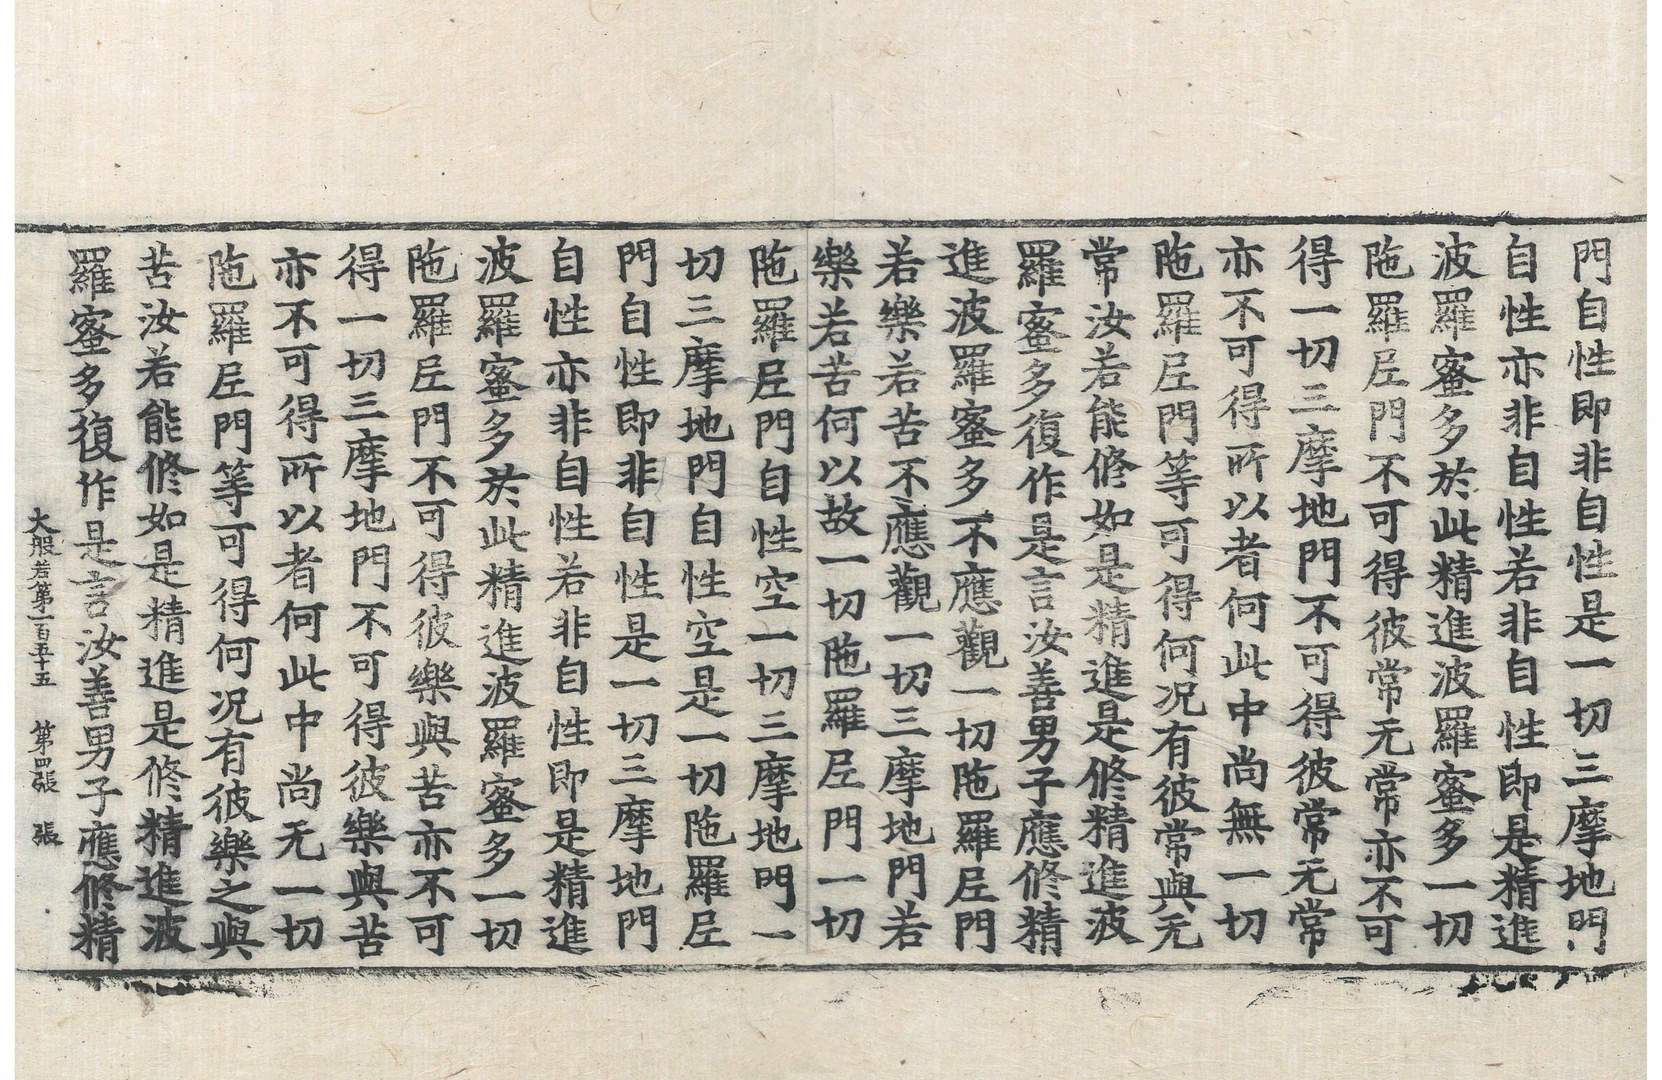 門自性即非自性是一切三摩地門
自性亦非自性若非自性即是精進
波羅蜜多於此精進波羅蜜多一切
陁羅尼門不可得彼常无常亦不可
得一切三摩地門不可得彼常无常
亦不可得所以者何此中尚無一切
陁羅尼門等可得何况有彼常與无
常汝若能修如是精進是修精進波
羅蜜多復作是言汝善男子應修精
進波羅蜜多不應觀一切陁羅尼門
若樂若苦不應觀一切三摩地門若
樂若苦何以故一切陁羅尼門一切
陁羅尼門自性空一切三摩地門一
切三摩地門自性空是一切陁羅尼
門自性即非自性是一切三摩地門
自性亦非自性若非自性即是精進
波羅蜜多於此精進波羅蜜多一切
陁羅尼門不可得彼樂與苦亦不可
得一切三摩地門不可得彼樂與苦
亦不可得所以者何此中尚无一切
陁羅尼門等可得何况有彼樂之與
苦汝若能修如是精進是修精進波
羅蜜多復作是言汝善男子應修精
大般若第一百五十五 第四張 張